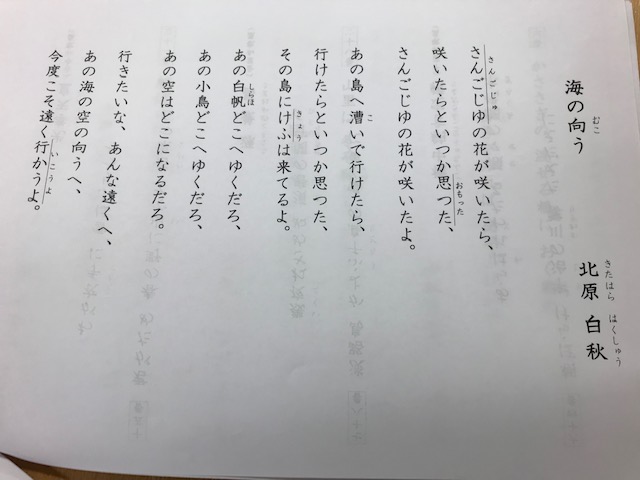 海の向う
むこ
北原 白秋
きたはら はくしゅう
さんごじゆの花が咲いたら、
さんごじゅ
咲いたらといつか思つた、
おもった
さんごじゆの花が咲いたよ。
あの島へ漕いで行けたら、
こ
行けたらといつか思つた、
その島にけふは来てるよ。
きょう
あの白帆どこへゆくだろ、
しらほ
あの小鳥どこへゆくだろ、
あの空はどこになるだろ。
行きたいな、あんな遠くへ、
あの海の空の向うへ、
今度こそ遠く行かうよ。
いこうよ